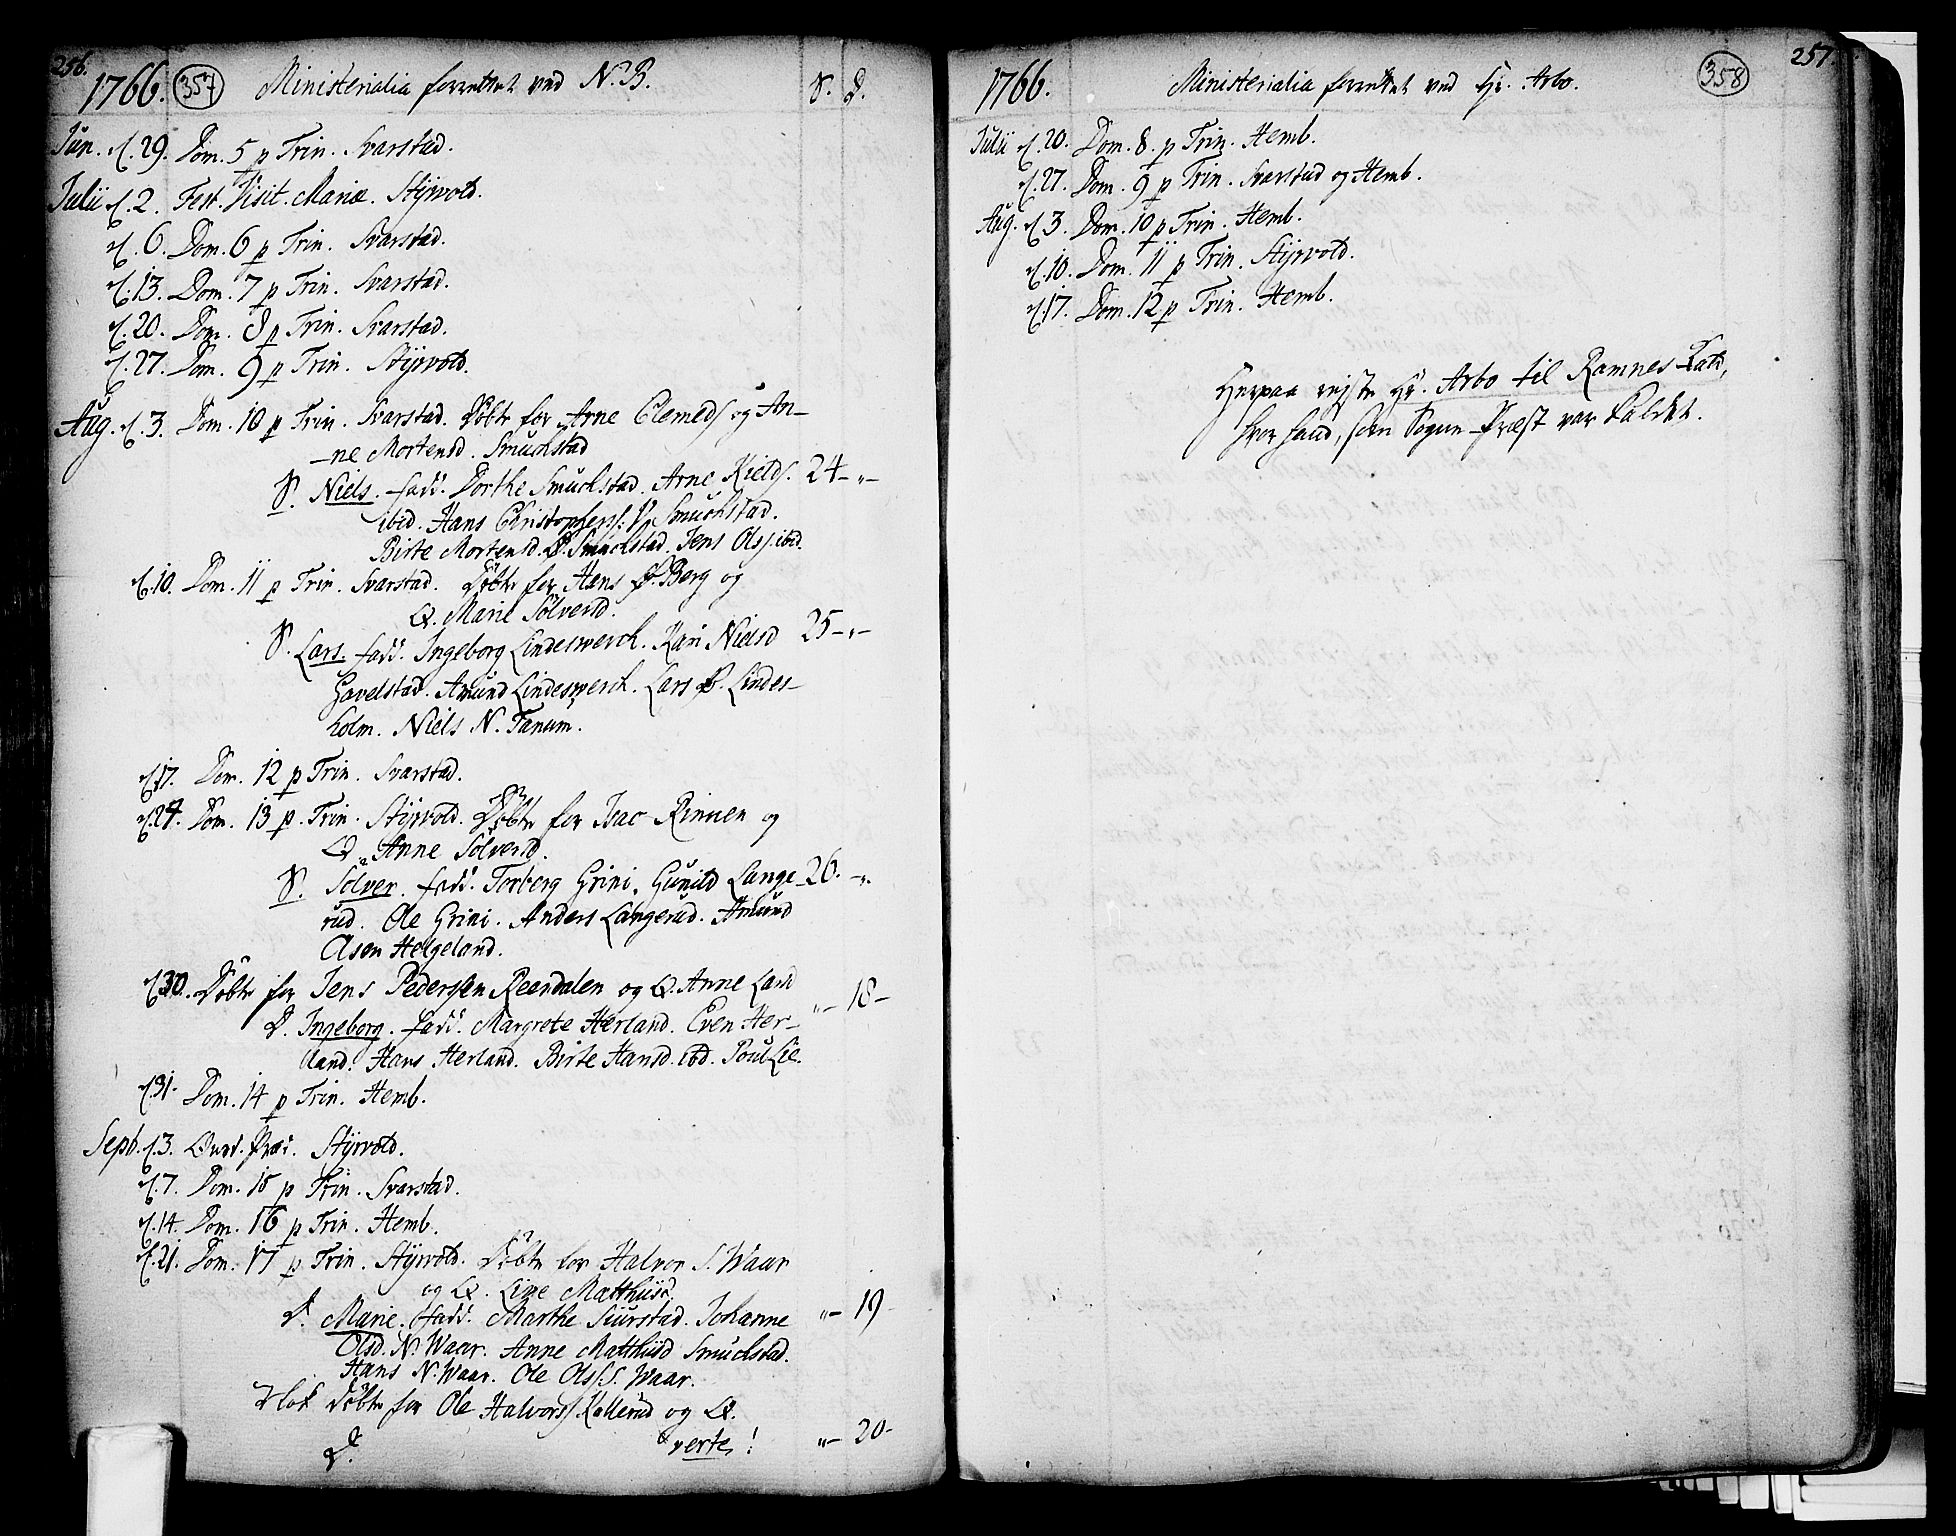 256.
1766. 357 Ministerialia forrettet ved N.B. S. D.
Jun. d. 29. Dom. 5 p Trin. Svarstad.
Julii d. 2. Fest. Visit. Mariæ. Styrvold.
d. 6. Dom. 6 p Trin. Svarstad.
d. 13. Dom. 7 p Trin. Svarstad.
d. 20. Dom. 8 p Trin. Svarstad.
d. 27. Dom. 9 p Trin. Styrvold.
Aug. d. 3. Dom. 10 p Trin. Svarstad. Döbt for Arne Clemeds og An-
-ne Mortensd. Smuchstad
S. Niels. fadd. Dorthe Smuchstad. Arne Kields. 24 - " -
ibid. Hans Christophers: Smuchstad.
Birte Mortensd. Smuchstad. Jens Ols. ibid.
d. 10. Dom. 11 p Trin. Svarstad. Döbt for Hans Ø. Berg og
Q. Marie Sölversd.
S. Lars. fadd. Ingeborg Lindeswerch. Kari Nielsd 25 - " -
Gavelstad. Amund Lindeswerch. Lars Ø. Lindes-
holm. Niels N. Tanum.
d. 17. Dom. 12 p Trin. Svarstad.
d. 24. Dom. 13 p. Trin. Styrvold. Döbt for Isac Rinnen og
Q. Anne Sölversd.
S. Sölver. fadd. Torberg Grini. Gunild Lange- 26. - ".
rud. Ole Grini. Anders Langerud. Amund
Ason Helgeland.
d. 30. Döbt for Jens Pedersen Reendalen og Q. Anne Larsd
D. Ingeborg. fadd. Margrete Herland. Even Her- " - 18 -
land. Hans Herland. Birte Hansd. ibd. Poul Lie.
d. 31. Dom. 14 p Trin. Hemb.
Sept. d. 3. Styrvold.
d. 7. Dom. 15 p Trin. Svarstad.
d. 14. Dom. 16 p Trin. Hemb.
d. 21. Dom. 17 p Trin. Styrvold. Döbt for Halvor S. Waar
og Q. Live Matthiisd.
D. Marie. fadd. Marthe Siurstad. Johanne " - 19 -
Olsd. N. Waar. Anne Matthiisd Smuchstad.
Hans N. Waar. Ole Ols. S. Waar.
Item Döbt for Ole Halvors. Kallerud og Q.
D. verte! " - 20 -
257.
1766. Ministerialia forrettet ved Hr. Arbo. 358
Julii d. 20. Dom. 8. p Trin. Hemb.
d. 27. Dom. 9 p Trin. Svarstad og Hemb.
Aug. d. 3. Dom. 10 p Trin. Hemb.
d. 10. Dom. 11 p Trin. Styrvold.
d. 17. Dom. 12 p Trin. Hemb.
Herpaa rejste Hr. Arbo til Ramnes Kald,
hvor hand, som Sogne-Præst var kaldet.